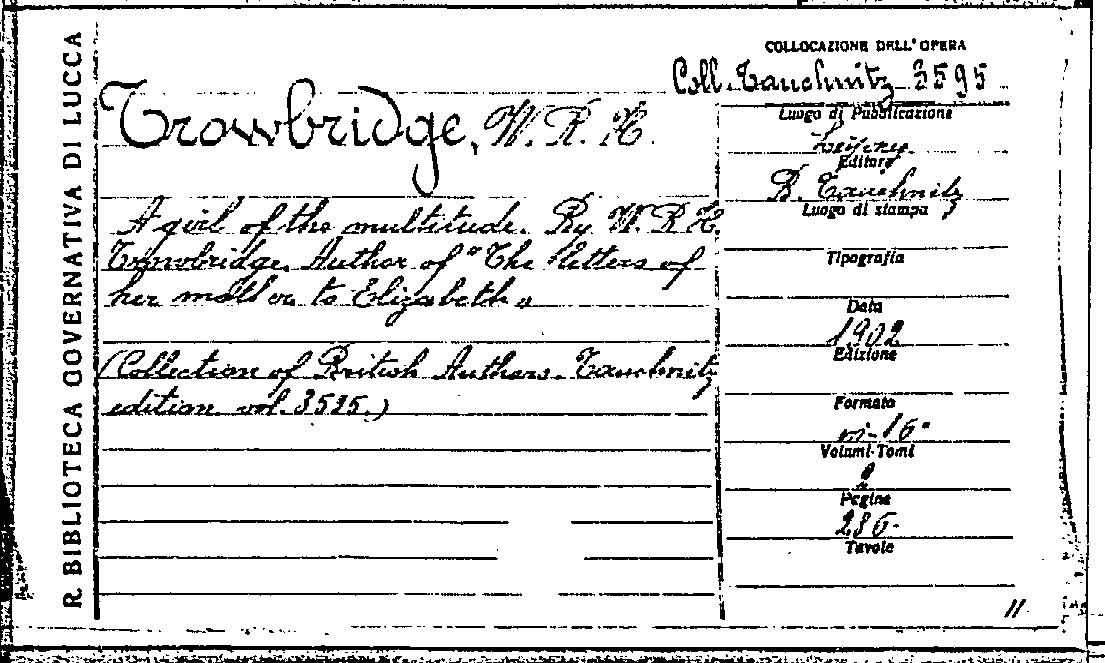 R. BIBLIOTECA GOVERNATIVA DI LUCCA
Trowbridge, W. R. H.
A girl of the multitude. By W. R. H.
Trowbridge. Author of "The letters of
her mother to Elizabeth"
(Collection of British Authors. Tauchnitz
edition vol. 3595.)
COLLOCAZIONE DELL'OPERA
Coll. Tauchnitz 3595
Luogo di Pubblicazione
Leipzig
Editore
B. Tauchnitz
Luogo di stampa
Tipografia
Data
1902
Edizione
Formato
in-16°
Volumi-Tomi
Pagine
286.
Tavole
11